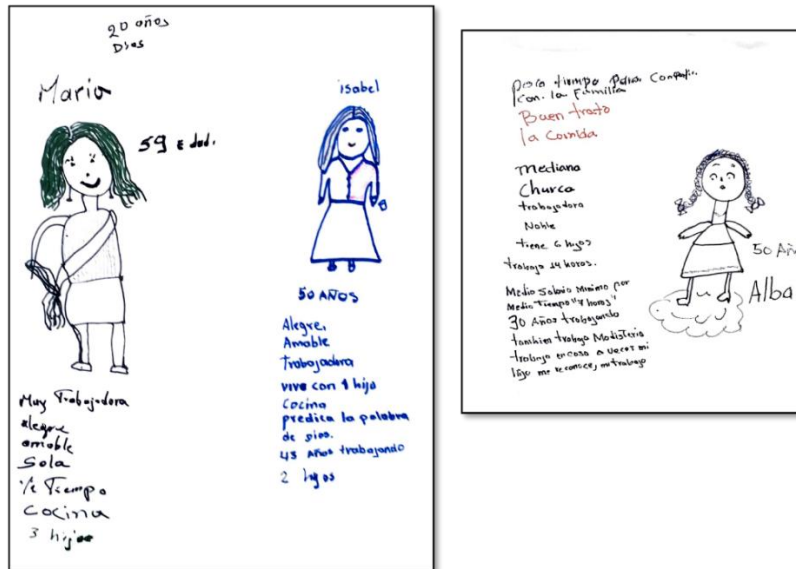 20 años
Dias
Maria
59 Edad.
Muy Trabajadora
alegre
amable
Sola
1/2 Tiempo
Cocina
3 hijos
isabel
50 AÑOS
Alegre,
Amable
Trabajadora
vive con 1 hijo
Cocina
predica la palabra
de Dios.
43 Años trabajando
2 hijos
poco tiempo para Compatir
con la Familia
Buen trato
la Comida
Mediana
Churca
trabajadora
Noble
tiene 6 hijos
trabaja 14 horas.
Medio Salario Minimo por
Medio Tiempo "7 horas"
30 Años trabajando
tambien trabaja Modisteria
trabajo en casa a veces mi
hijo me reconoce, mi trabajo
50 Añ
Alba